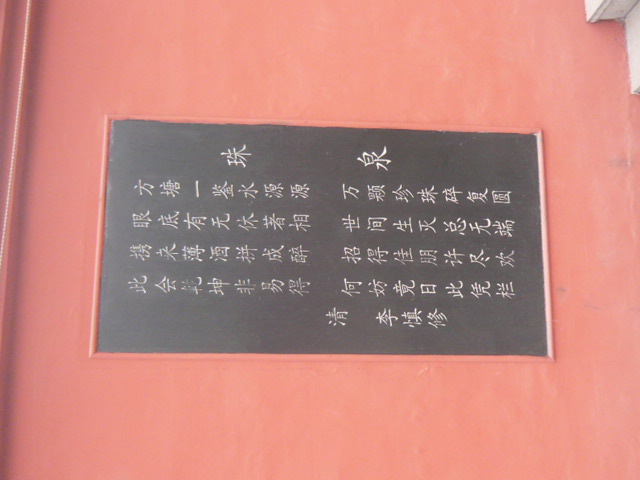 珠 泉
方塘一鉴水源源 万颗珍珠碎复圆
眼底有无休著相 世间生灭总无端
携来薄酒拼成醉 招得佳朋许尽欢
此会乾坤非易得 何妨竟日此凭栏
清 李慎修